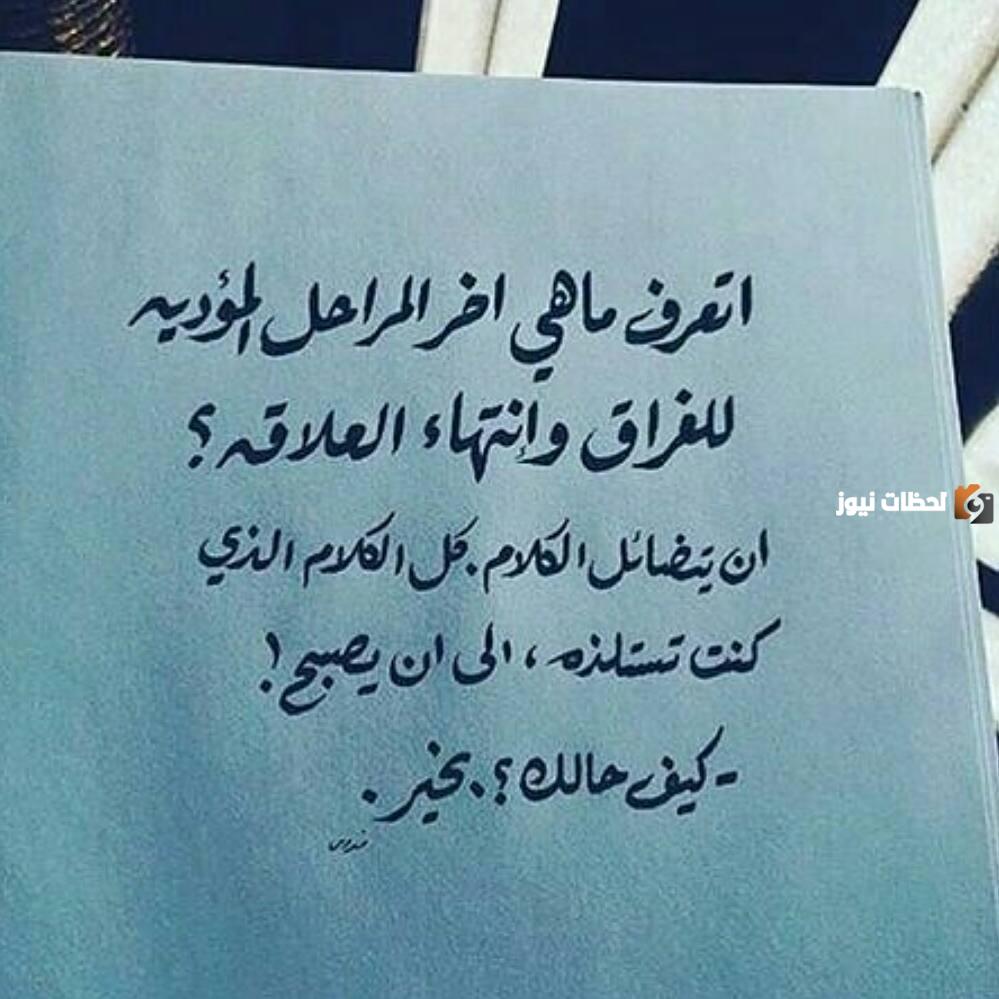 اتعرف ماهي اخر المراحل المؤديه
للفراق وإنتهاء العلاقه ؟
لحظات نيوز
ان يتضائل الكلام . كل الكلام الذي
كنت تستلذه ، الى ان يصبح !
- كيف حالك ؟ . بخير .